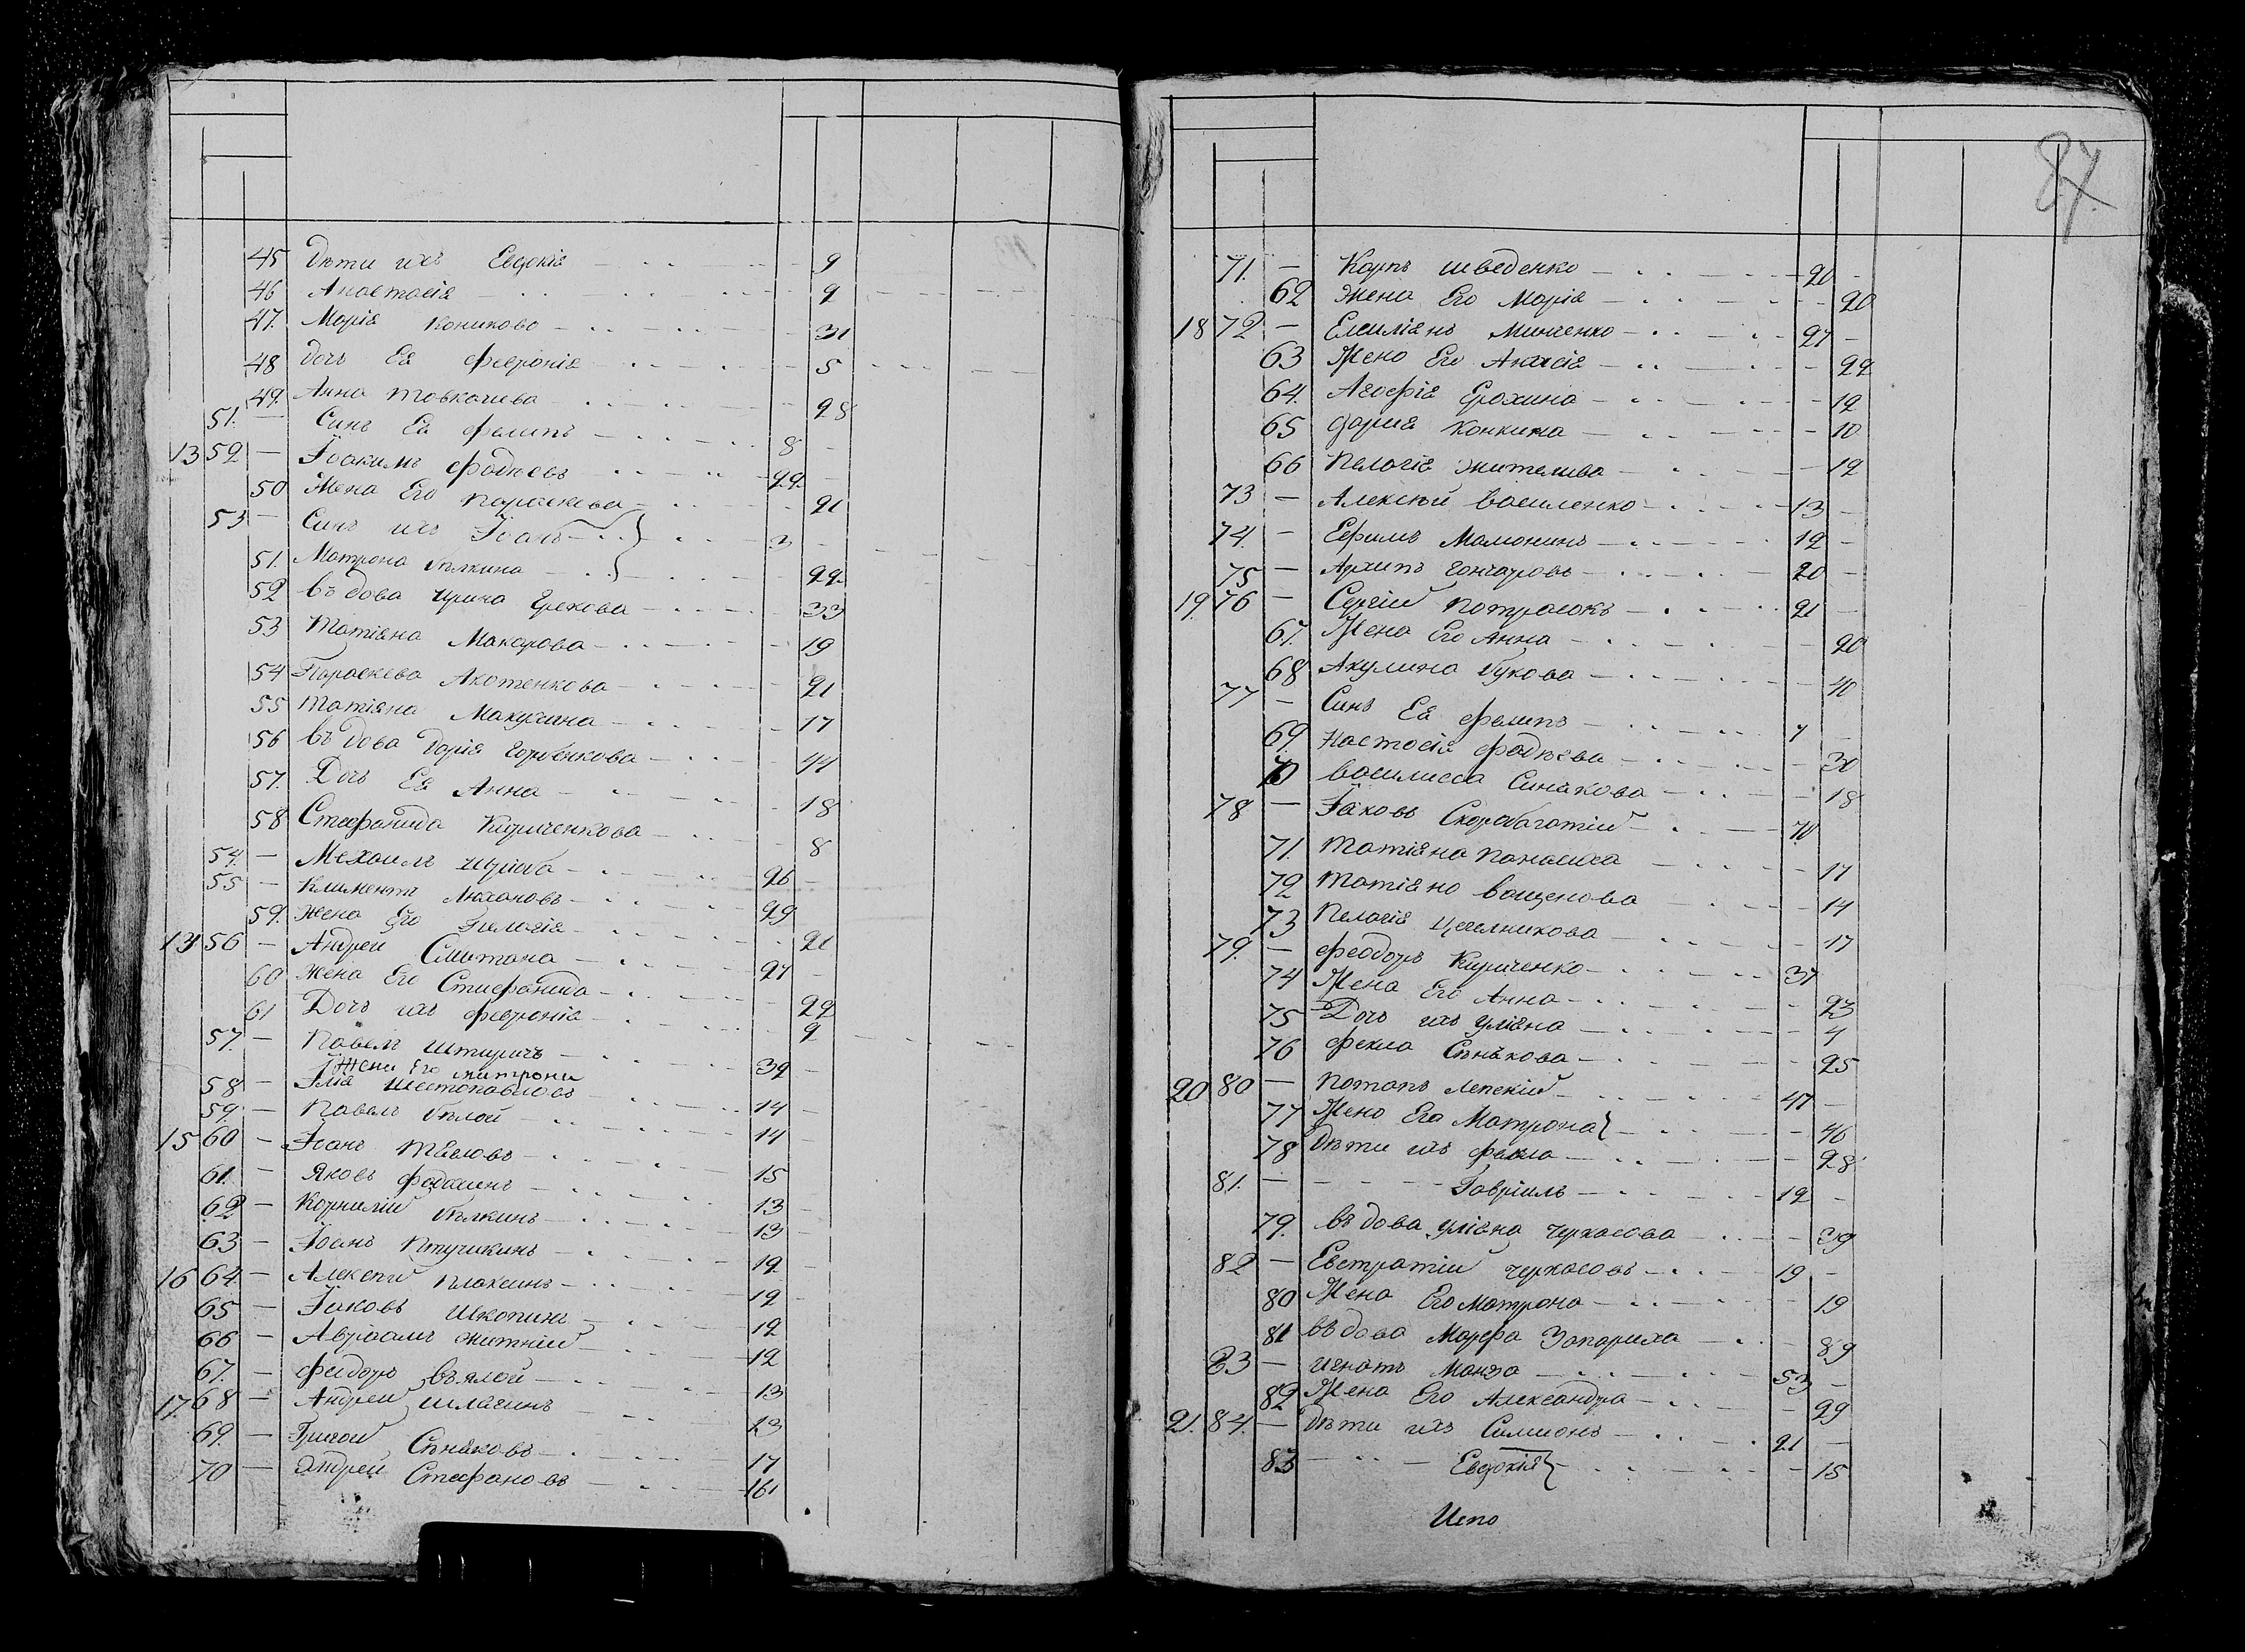 45 Дѣти ихъ Евдокіѧ 9
46 Анастасіѧ 9
47. Маріѧ Коникова 31
48 дочь Еѧ Февроніѧ 5
49. Анна Товкачева 28
51. — Синъ Еѧ Филипъ 8
13 52 — Іоакимъ Фадѣевъ 22
50 Жена Его Параскева 21
53 — Синъ ихъ Іоанъ 3
51. Матрона Бѣлкина 22
52 въдова Ирина Грекова 33
53 Татіѧна Макарова 19
54 Параскева Акотенкова 21
55 Татіѧна Макухина 17
56 въдова Даріѧ Горбенкова 44
57. Дочь Еѧ Анна 18
58 Стефанида Кириченкова 8
54. — Михаилъ 26
55 — Климентъ Лихановъ 29
59. жена Его Пелагіѧ 21
14 56 — Андреи Сметана 27
60 жена Его Стефанида 22
61 Дочь ихъ Февроніѧ 9
57. — Павелъ Штиричъ 32
Жена Его Матрона
58 — Іліѧ Шестопаловъ 14
59. — Павелъ Бѣлой 14
15 60 — Іоанъ 15
61. — Яковъ 13
62 — Корнилій Бѣлкинъ 13
63 — Іоанъ Птушкинъ 12
16 64. — Алексѣй Плаксинъ 12
65 — Іаковъ Шкопича 12
66 — Авраамъ Житній 12
67. — Феодоръ Въялой 13
17. 68 — Андреи Шлаѣинъ 13
69. — Григои Сѣнѧковъ 17
70 — Андреи Стефановъ 16
87.
71. — Карпъ Шведенко 20
62 жена Его Маріѧ 20
18 72 — Емиліѧнъ Минченко 27
63 Жена Его Анисіѧ 22
64. Агафіѧ Ерохина 12
65 Дариѧ Конкина 10
66 Пелагіѧ Жителива 12
73 — Алексѣй Василенко 13
74. — Ефимъ Мамонинъ 12
75 — Архипъ Гончаровъ 20
19. 76 — Сергій Потрасокъ 21
67. Жена Его Анна 20
68 Акулина Букова 40
77 — Синъ Еѧ Филипъ 7
69. Настасіѧ Фадѣева 30
70 Василисса Синѧкова 18
78 — Іаковъ Скоробагатій 70
71. Татіѧна Панасиха 17
72 Татіѧна Ващенова 14
73 Пелагіѧ Цегелникова 17
79. — Феодоръ Кириченко 37
74 Жена Его Анна 23
75 Дочь ихъ Уліѧна 4
76 Фекла Сѣнѧкова 25
20 80 — Потапъ Лепскій 47
77 Жена Его Матрона 46
78 Дѣти ихъ Фекла 28
81. — Гавріилъ 12
79. въдова Уліѧна Черкасова 39
82 — Евстратій Черкасовъ 19
80 Жена Его Матрона 19
81 въдова Марфа Запариха 89
83 — Игнатъ Манжа 53
82 Жена Его Александра 29
21. 84. — Дѣти ихъ Симионъ 21
83 Евдокіѧ 15
Исто